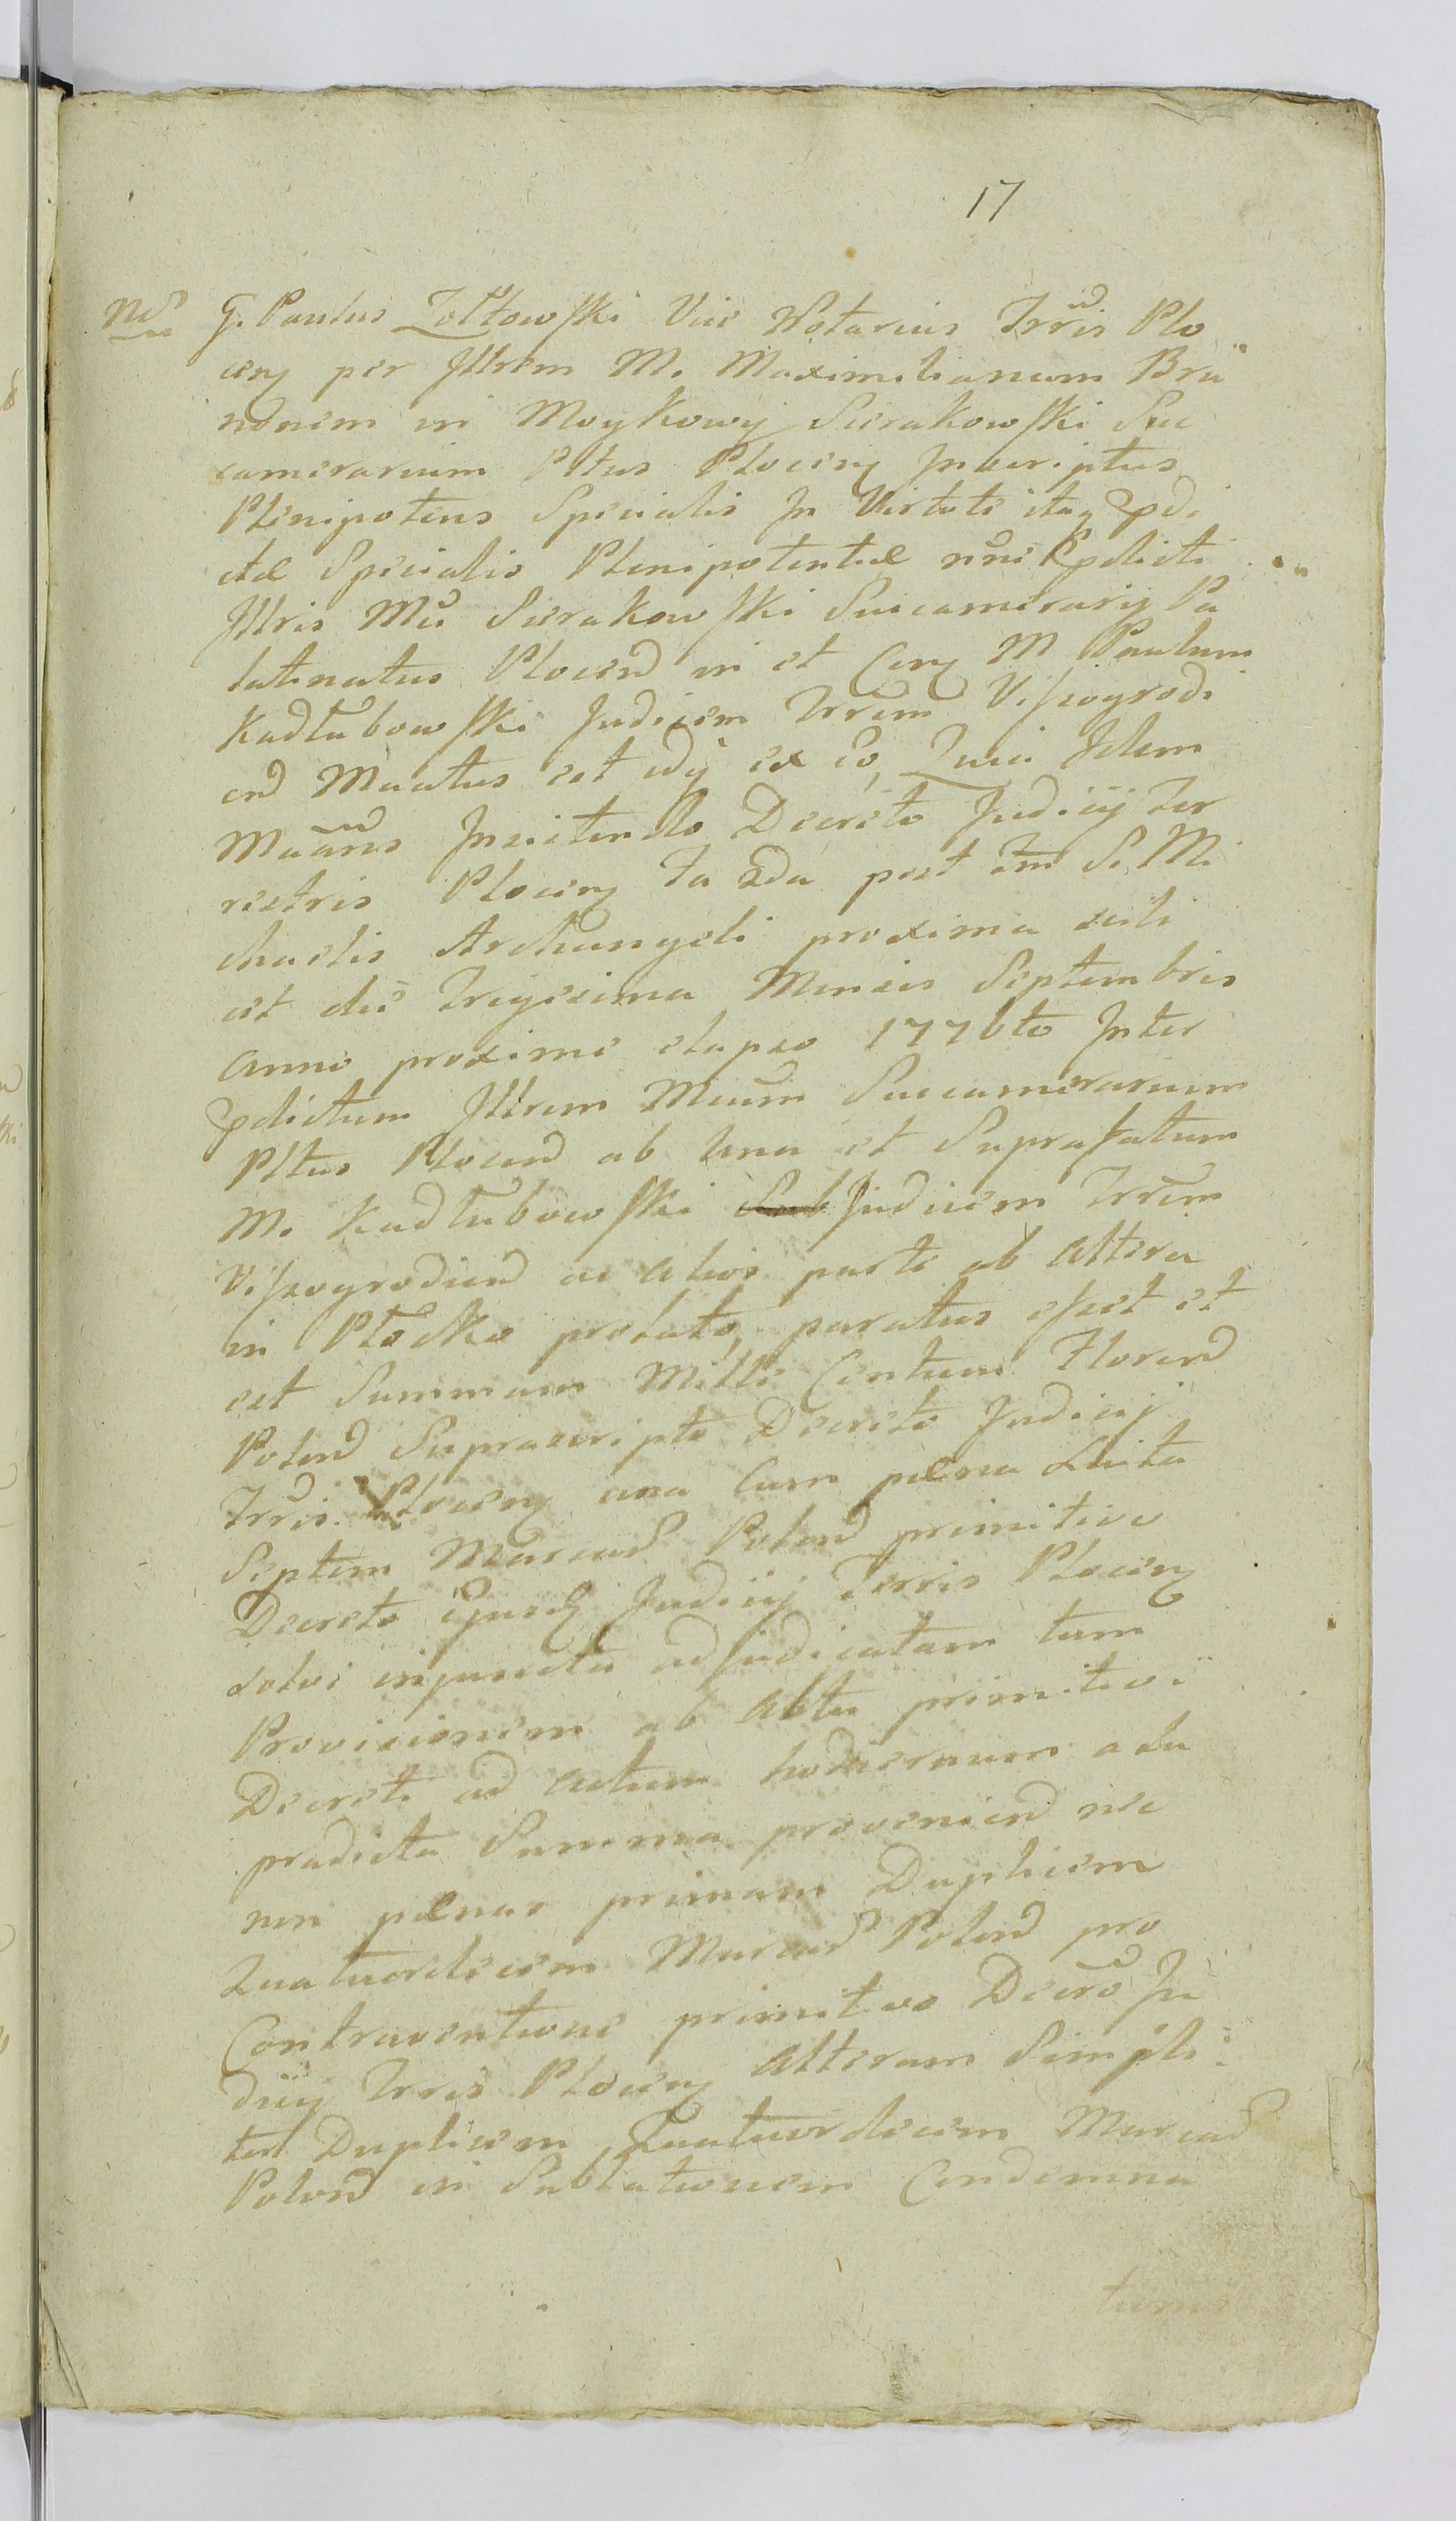 17
Nd
G. Paulus Zołtowski Vice Notarius Trris Plo
cen per Jllrem M. Maximilianum Bru
nonem in Moykowy Sierakowski Suc
camerarium Pltus Plocen Jnscriptus
Plenipotens Specialis Jn Virtute itaq pdi
ctæ Specialis Plenipotentiæ nne pdicti
Jllris Mci Sierakowski Succamerarij Pa
latinatus Plocen in et Con M Paulum
Kadłubowski Judicem Trrem Viszogrodi
en Maatus est idq ex eo, Quia Jdem
Maans Jnsistendo Decreto Judicij Ter
restris Plocen fa 2da post ftm S. Mi
chaelis Archangeli proxima scili
cet die Trigesima Mensis Septembris
Anno proxime elapso 1776to Jnter
pdictum Jllrem Mcum Succamerarium
Pltus Plocen ab Una et Suprafatum
M. Kadłubowski Sub Judicem Trrem
Viszogrodien ac alios parte ab altera
in Płocko prolato, paratus esset et
est Summam Mille Centum Floren
Polon Suprascripto Decreto Judicij
Trris Plocen una Cum pæna Luita
Septem Marcar Polon primitivo
Decreto ejusd Judicij Terris Plocen
solvi injuncta adjudicatam tum
Provisionem ab Actu primitivi
Decreti ad actum hodiernum a du
pradicta Summa provenien nec
non pænas primam Duplicem
Quatuordecim Marcar Polon pro
Contraventione primitivo Decro Ju
dicij Trris Plocen Alteram Simpli
ter Duplicem Quatuordecim Marcar
Polon in Sublationem Condemna
tums